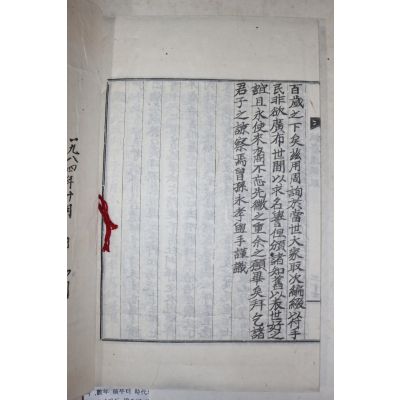 百歲之下矣玆用周詢於當世大家取次編綴以付手
民非欲廣布世間以求名譽但頒諸知舊以表世好之
誼且永使來裔不忘先徽之重余之願畢矣拜乞諸
君子之諒察焉曾孫永孝盥手謹識
一九八四年十月